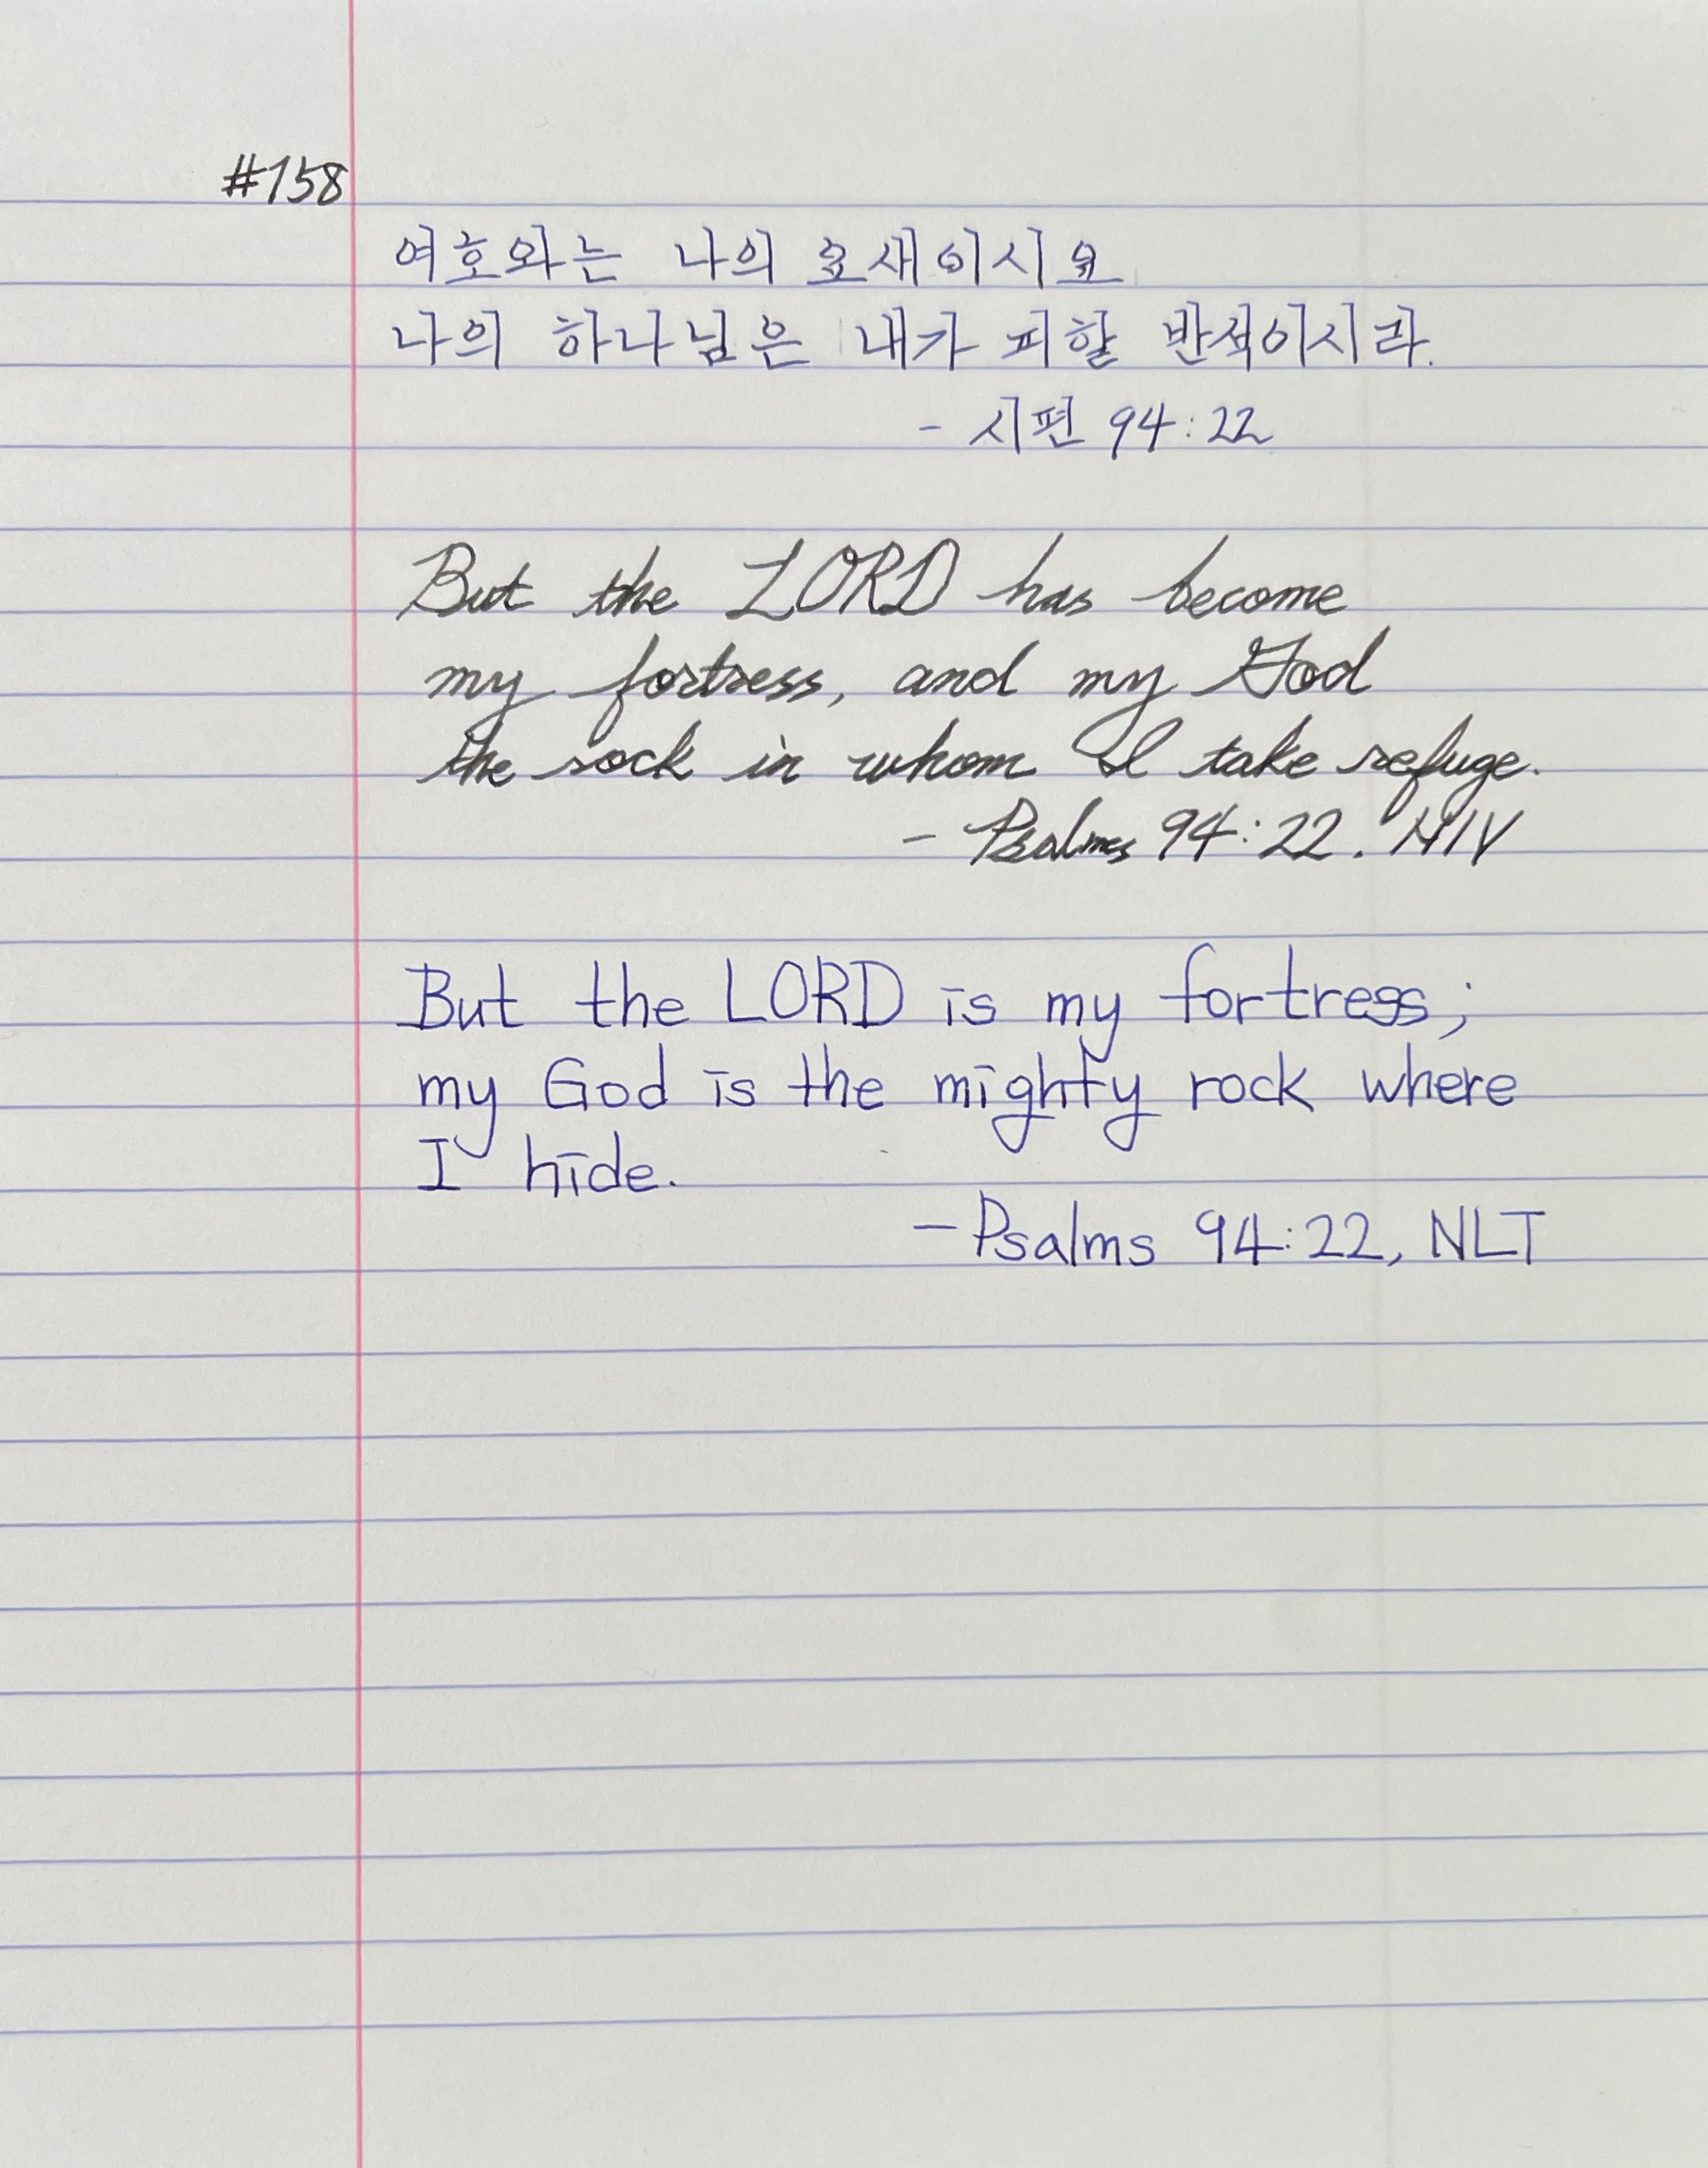 #158
여호와는 나의 요새이시요
나의 하나님은 내가 피할 반석이시라.
- 시편 94:22
But the LORD has become
my fortress, and my God
the rock in whom I take refuge.
- Psalms 94:22. NIV
But the LORD is my fortress;
my God is the mighty rock where
I hide.
- Psalms 94:22, NLT